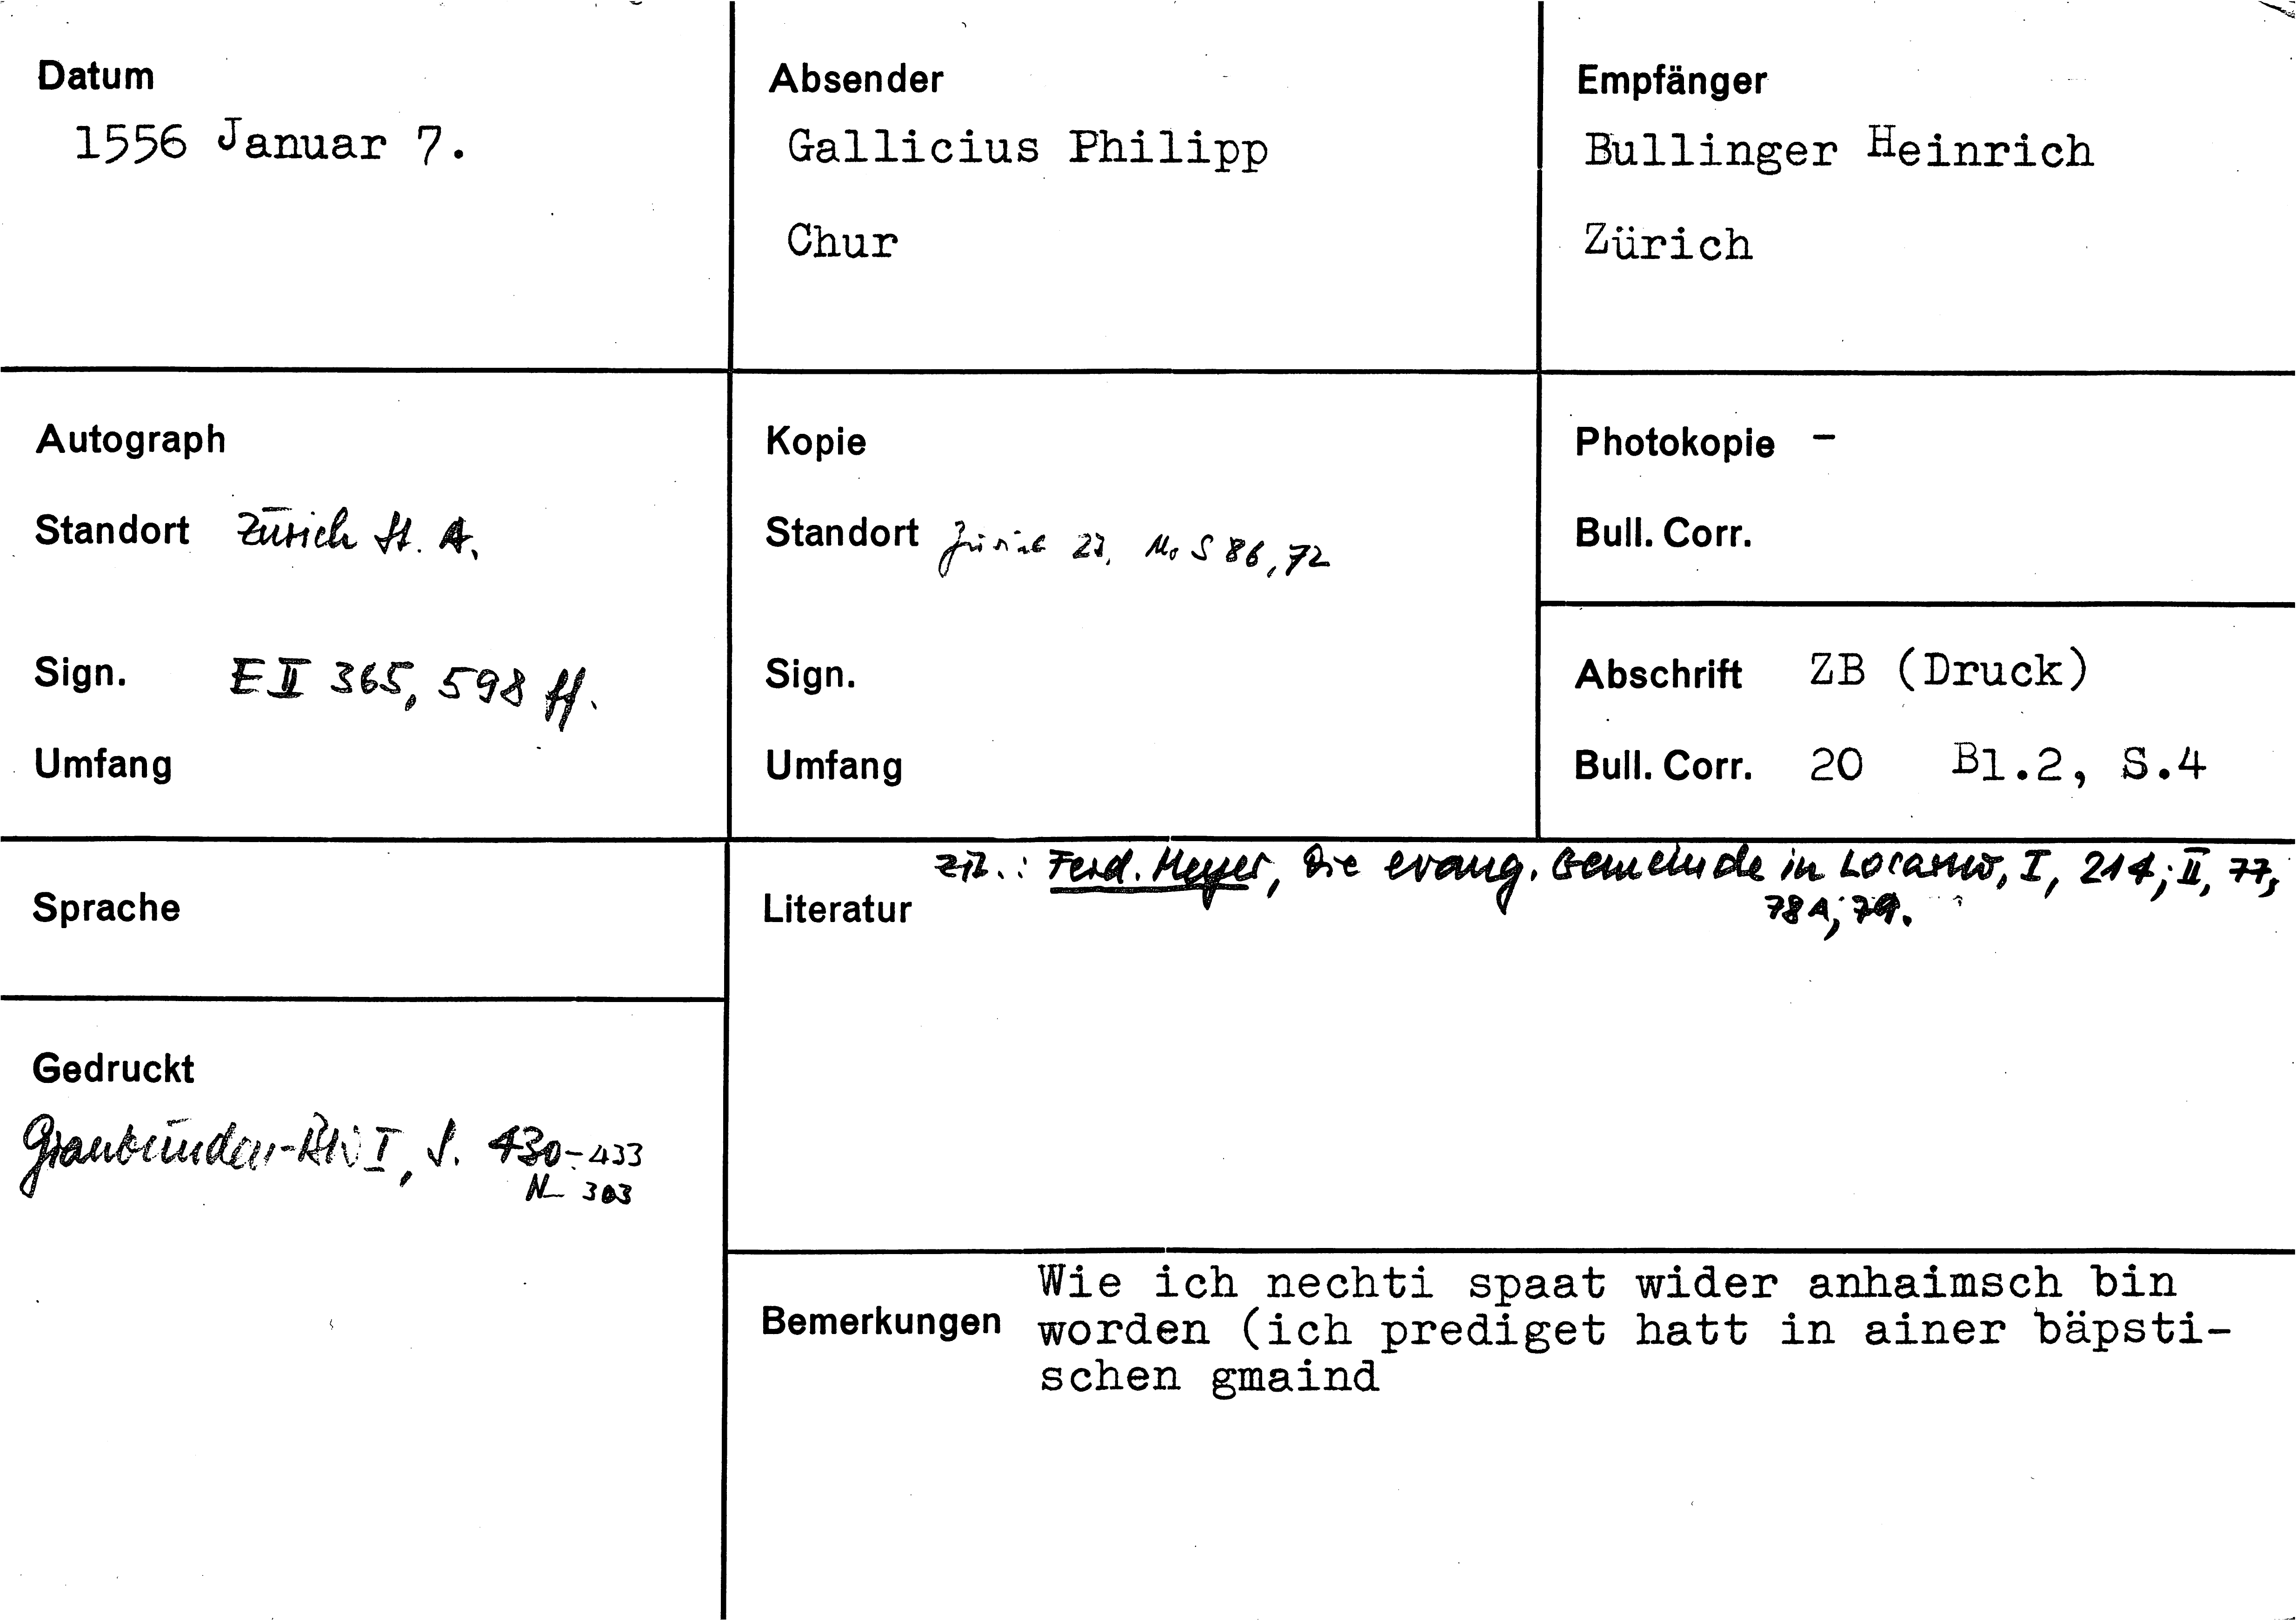 Datum
1556 Januar 7.
Absender
Gallicius Philipp
Chur
Empfänger
Bullinger Heinrich
Zürich
Autograph
Standort Zürich St. A.
Sign. E II 365, 598 ff.
Umfang
Kopie
Standort Zürich ZB, Ms S 86, 72
Sign.
Umfang
Photokopie -
Bull. Corr.
Abschrift ZB (Druck)
Bull. Corr. 20 Bl.2, S.4
Sprache
Gedruckt
Graubünden-BW I, S. 430-433
N 303
zit.: Ferd. Meyer, Die evang. Gemeinde in Locarno, I, 214; II, 77,
78A; 79.
Literatur
Bemerkungen
Wie ich nechti spaat wider anhaimsch bin
worden (ich prediget hatt in ainer bäpsti-
schen gmaind